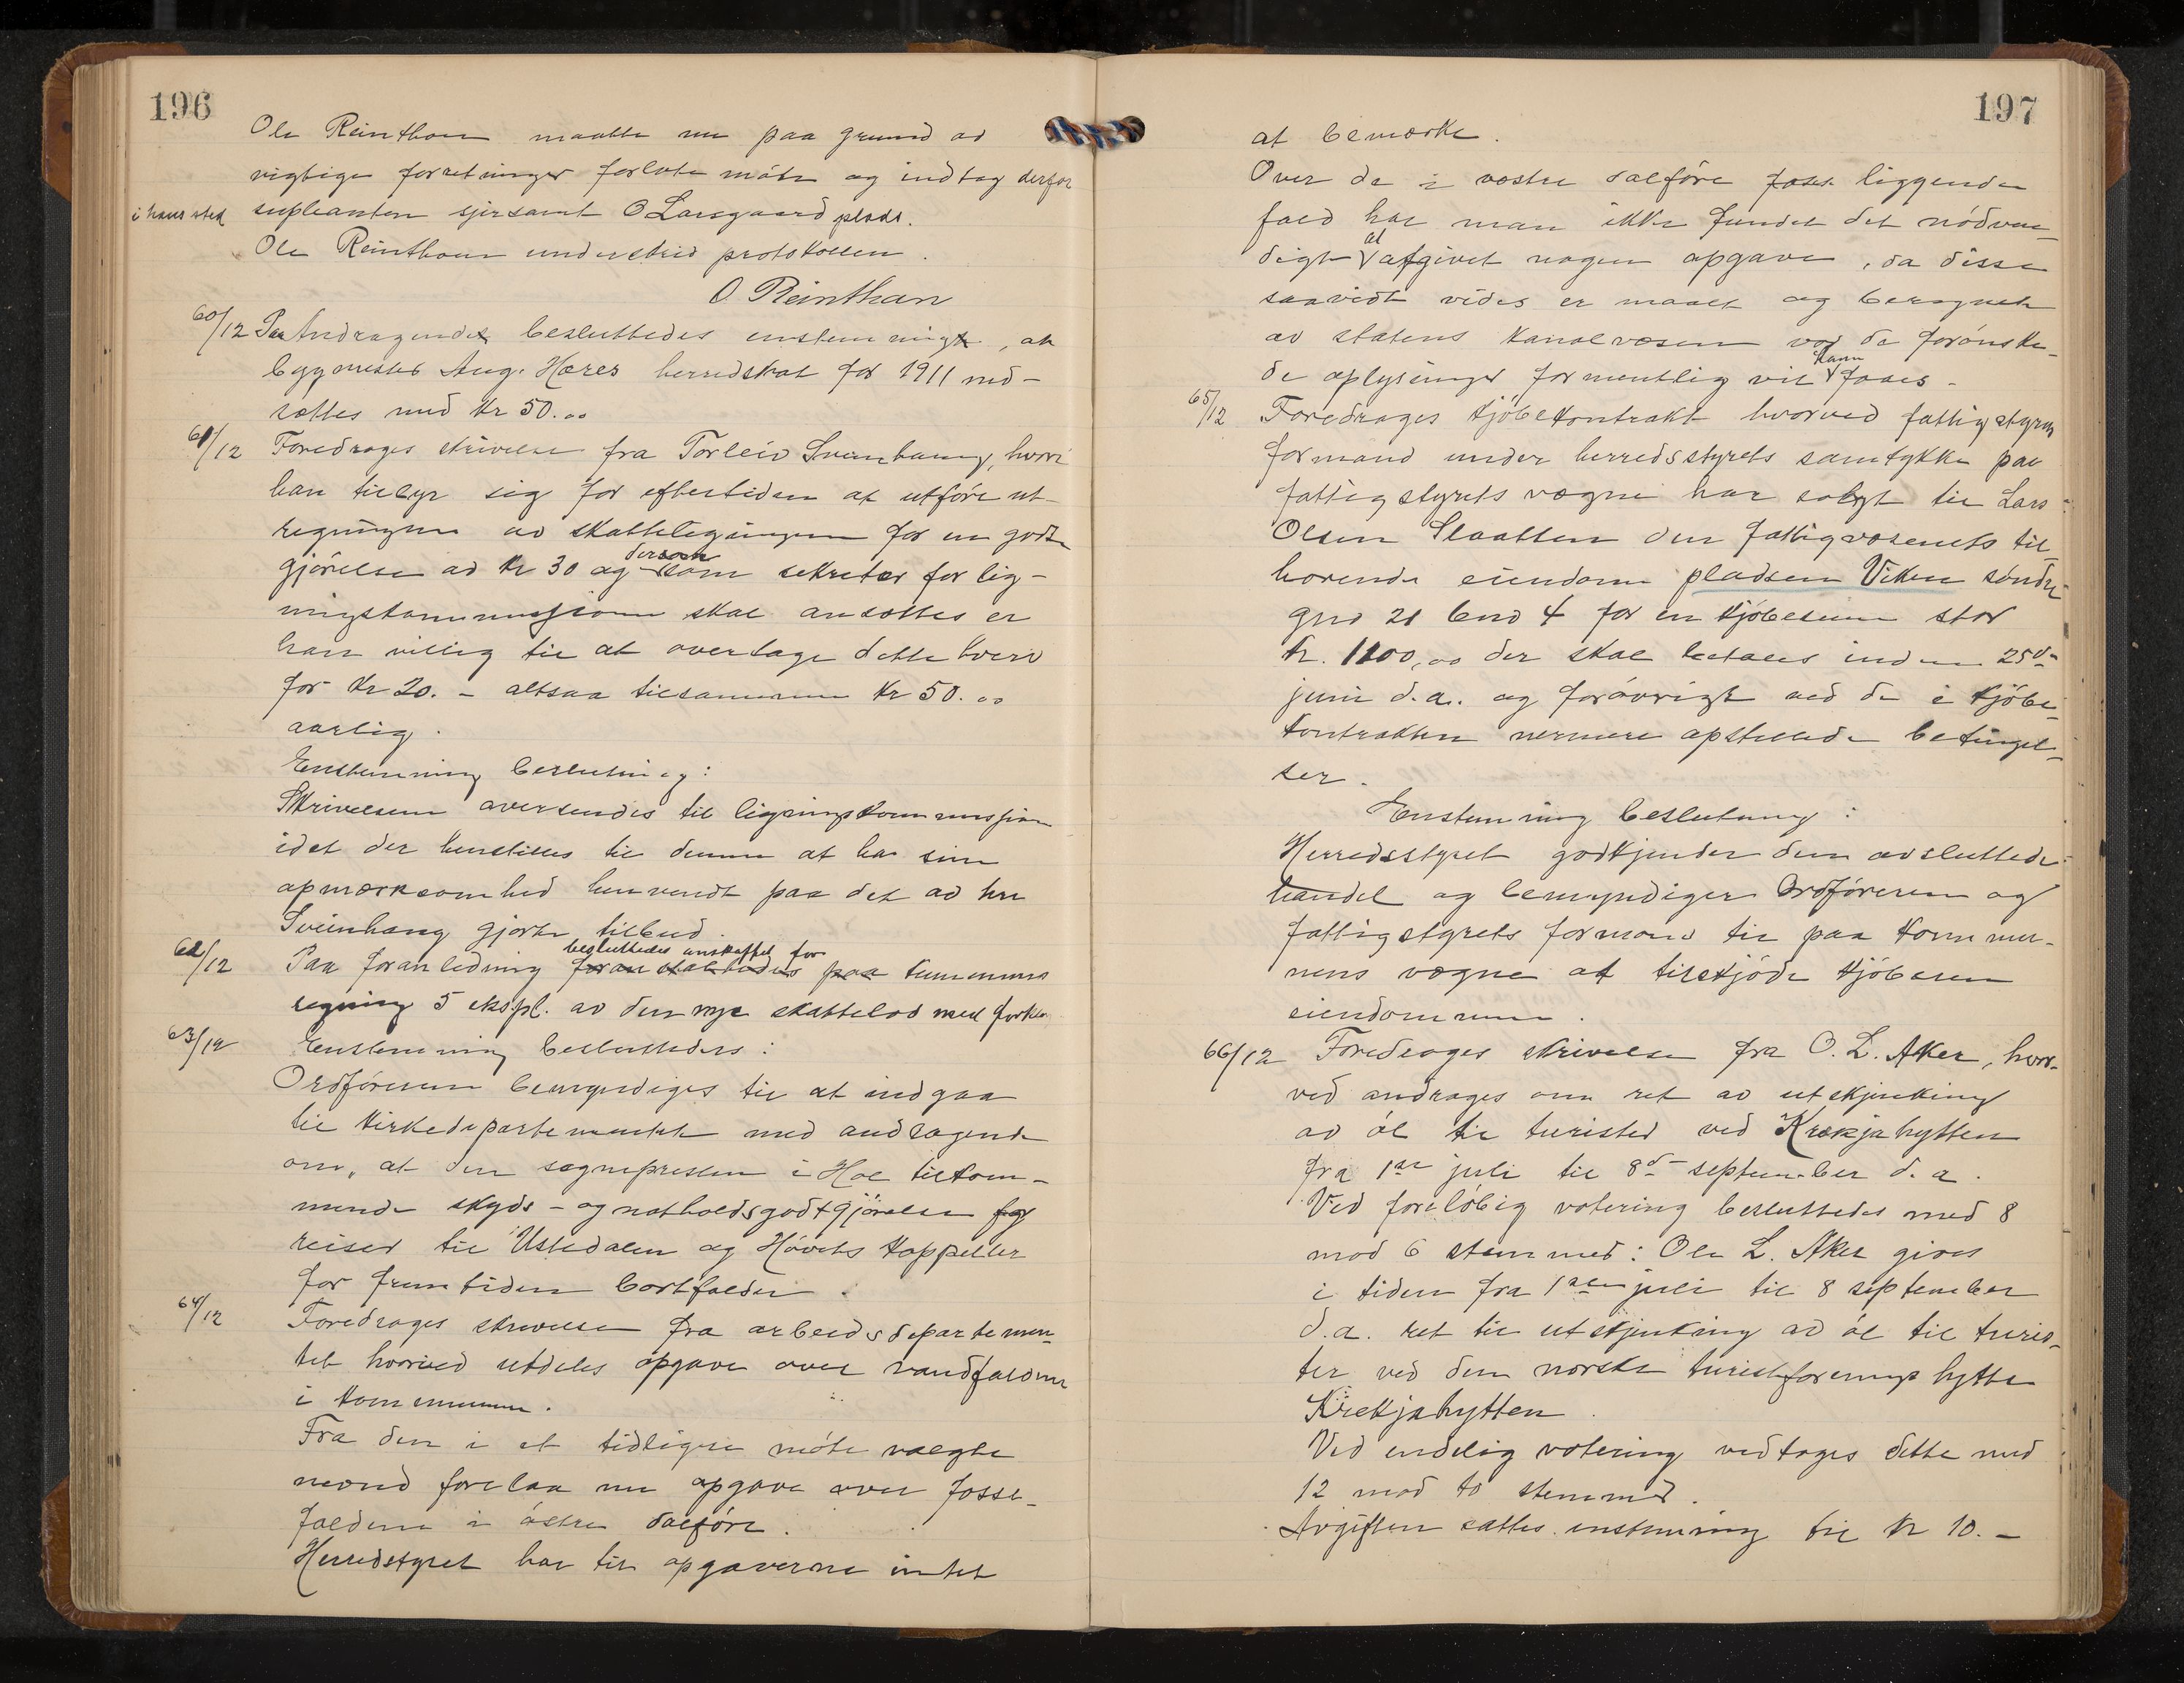 196
Ole Reinthon maatte nu paa grund av
vigtige forretninger forlate møte og indtog derfor
i hans sted supleanten sjersamt O Larsgaard plads.
Ole Reinthon underskrid protokollen.
O. Reinthon
60/12 Paa Andragende besluttedes enstemmigt, at
bygmester Aug. Hæres herredskat for 1911 ned-
sættes med kr 50.00
61/12 Foredroges skrivelse fra Torleiv Sveinhaug, hvori
han tilbyr sig for eftertiden at utføre ut-
regningen av skatteligningen for en godt-
gjørelse av kr 30 og dersom som sekretær for lig-
ningskommissionen skal ansættes er
han villig til at overtage dette hverv
for kr 20. - altsaa tilsammen kr 50.00
aarlig.
Enstemmig beslutning:
Skrivelsen oversendes til ligningskommissionen
idet der henstilles til denne at ha sin
opmerksomhed henvendt paa det av hr
Sveinhaug gjorte tilbud.
62/12 Paa foranledning besluttedes anskaffet for kommunens
regning 5 ekspl. av den nye skattelov med forkla
63/12 Enstemmig besluttedes:
Ordføreren bemyndiges til at indgaa
til kirkedepartementet med andragende
om, at den sognepresten i Hol tilkom-
mende skyds- og natholdsgodtgjørelse for
reiser til Ustedalen og Hovets kappeller
for fremtiden bortfalder.
64/12 Foredroges skrivelse fra arbeidsdepartemen-
tet hvorved utdeles opgave over vandfaldene
i kommunen.
Fra den i et tidligere møte valgte
mænd forelaa nu opgave over fosse-
faldene i østre dalføre.
Herredstyret har til opgaverne intet
197
at bemærke.
Over de i vestre dalføre foss liggende
fald har man ikke fundet det nødven-
digt at afgivet nogen opgave, da disse
saavidt vides er maalt og beregnet
av statens kanalvæsen vor de forønske-
de oplysninger formentlig vil kunn faaes -
65/12 Foredroges kjøbekontrakt hvorved fattigstyrets
formand under herredsstyrets samtykke paa
fattigstyrets vægne har solgt til Lars
Olsen Slaatten den fattigvæsenets til-
hørende eiendom pladsen Viken søndre
gno 21 bno 4 for en kjøbesum stor
kr. 1100,00 der skal betales inden 25de
juni d.a. og forøvrigt ved de i kjøbe-
kontrakten nermere opstillede betingel-
ser.
Enstemmig beslutning:
Herredsstyret godkjender den avsluttede
handel og bemyndiger Ordføreren og
fattigstyrets formand til paa kommu-
nens vægne at tilskjøde kjøberen
eiendommen.
66/12 Foredroges skrivelse fra O. L. Aker, hvor-
ved andrages om ret av utskjenkning
av øl til turisted ved Krækjahytten
fra 1ste juli til 8de september d.a.
Ved foreløbig votering besluttedes med 8
mod 6 stemmer: Ole L. Aker gives
i tiden fra 1ste juli til 8 september
d.a. ret til utskjenkning av øl til turis-
ter ved den norske turistforenings hytte
Krækjahytten.
Ved endelig votering vedtoges dette med
12 mod to stemmer.
Avgiften sattes enstemmig til kr 10.-